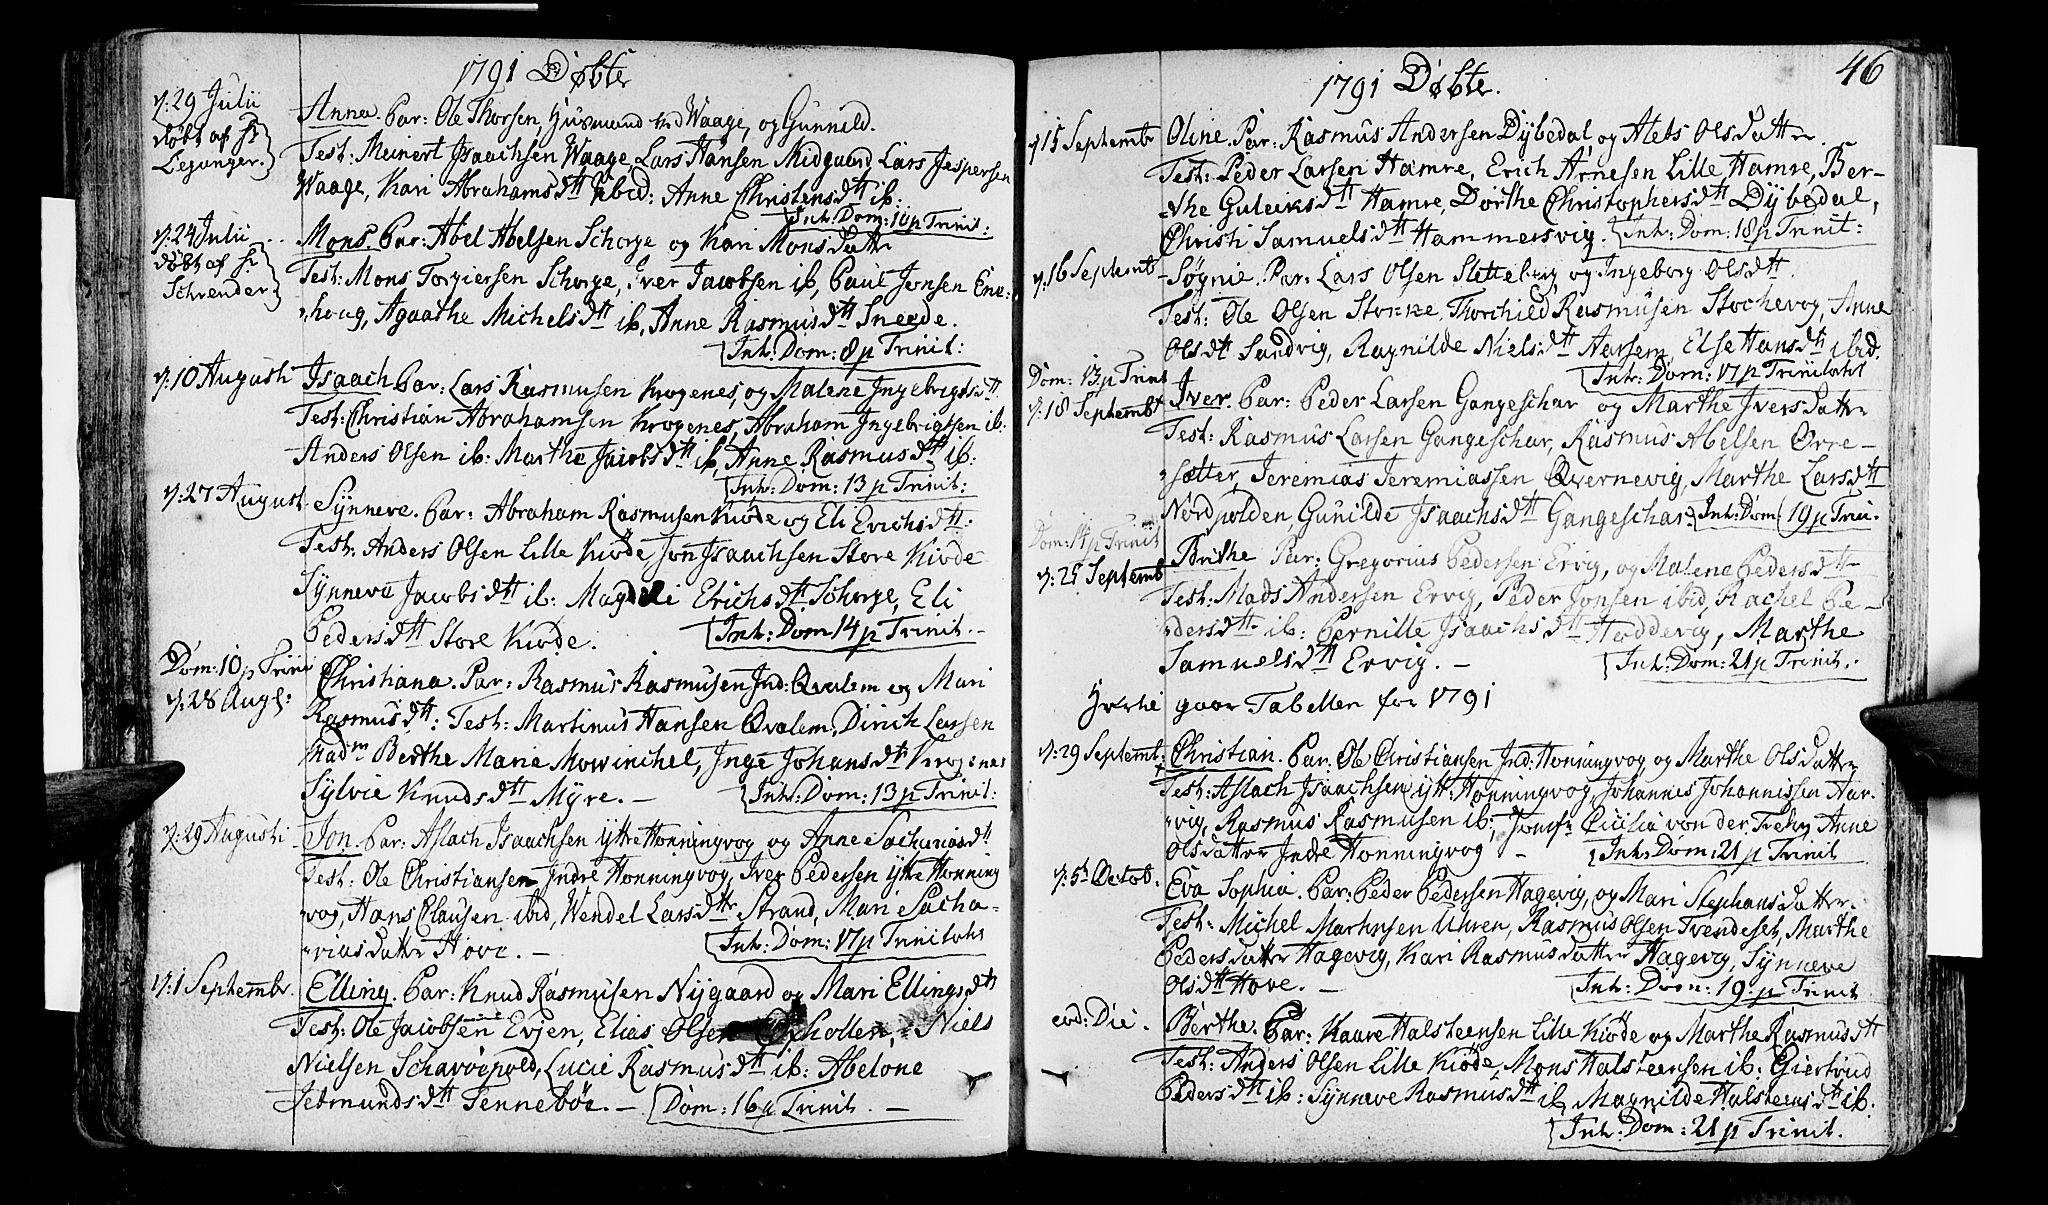 1791 Døbte
d: 29 Julii
døbt af Hr
Leganger.
Anna. Par: Ole Thorsen, Huusmand ved Waage, og Gunnild.
Test: Meinert Isaachsen Waage, Lars Hansen Midgaard, Lars Jespersen
Waage, Kari Abrahamsdtt ibid: Anne Christensdtt ib:
Int: Dom: 10 p Trinit:
d: 24 Julii
døbt af Hr
Schrender
Mons. Par: Abel Abelsen Schorge og Kari Monsdattr
Test: Mons Torgiersen Schorge, Iver Jacobsen ib, Paul Jonsen Ene-
houg, Agaathe Michelsdtt ib, Anne Rasmusdtt Sneede.
Int: Dom: 8 p Trinit:
d: 10 August
Isaach Par: Lars Rasmusen Krogenes, og Malene Ingebrigtsdtt
Test: Christian Abrahamsen Krogenes, Abraham Ingebrigtsen ib:
Anders Olsen ib: Marthe Jacobsdtt ib, Anne Rasmusdtt ib:
Int: Dom: 13 p Trinit:
d: 27 August
Synneve. Par: Abraham Rasmusen Kiøde og Eli Erichsdtt:
Test: Anders Olsen Lille Kiøde, Jon Isaachsen Store Kiøde
Synneva Jacobsdtt ib: Magdeli Erichsdtt Schorge, Eli
Pedersdtt Store Kiøde.
Int: Dom 14 p Trinit.
Dom: 10 p Trini
d: 28 Aug:
Christiana. Par: Rasmus Rasmusen Ind: Qvalem og Mari
Rasmusdtt: Test: Martinus Hansen Qvalem, Dirich Larsen
Madm Berthe Marie Mowinchel, Inge Johansdtt Krogenes
Sylvie Knudsdtt Myre. —
Int: Dom: 13 p Trinit:
d: 29 Augusti
Jon. Par: Aslach Isaachsen ytre Honningvog og Anne Sachariasdtt
Test: Ole Christiansen Indre Honningvog, Iver Pedersen ytre Honning
vog, Hans Clausen ibid, Wendel Larsdtt Strand, Mari Sacha-
riasdatter Hove. —
Int: Dom: 17 p Trinitatis
d: 1 Septembr.
Elling. Par: Knud Rasmusen Nijgaard og Mari Ellingsdtt
Test: Ole Jacobsen Evjen, Elias Olsen Opholten, Niels
Nielsen Scharvepold, Lucie Rasmusdtt ib: Abelone
Jetmundsdtt Tennebøe. —
Dom: 16 p Trinit. —
46
1791 Døbte.
d 15 Septembr
Oline. Par: Rasmus Andersen Dybedal og Alets Olsdattr.
Test: Peder Larsen Hamre, Erich Arnesen Lille Hamre, Ber-
the Guleiksdtt Hamre, Dorthe Christophersdtt Dybedal,
Christi Samuelsdtt Hammersvig.
Int: Dom: 18 p Trinit:
d: 16 Septembr
Søgnie. Par: Lars Olsen Sletteberg og Ingeborg Olsdtt.
Test: Ole Olsen Storke, Thorchild Rasmusen Stochevog, Anne
Olsdtt Sandvig, Ragnilde Nielsdtt Aarsem, Else Hansdtt ibid.
Int: Dom: 17 p Trinitatis
Dom: 13 p Trinit
d: 18 Septembr
Iver. Par: Peder Larsen Gangeschar og Marthe Iversdattr
Test: Rasmus Larsen Gangeschar, Rasmus Abelsen Ørre-
sætter, Jeremias Jeremiassen Qvernevig, Marthe Larsdtt
Nordpolden, Gunilde Isaachsdtt Gangeschar.
Int: Dom 19 p Trin.
Dom: 14 p Trinit
d: 25 Septemb
Brithe Par: Gregorius Pedersen Ervig, og Malena Pedersdtt
Test: Mads Andersen Ervig, Peder Jonsen ibid, Rachel Pe-
dersdtt ib: Pernille Isaachsdtt Hoddevig, Marthe
Samuelsdtt Ervig. —
Int: Dom: 21 p Trinit.
Hertil gaar Tabellen for 1791
d: 29 Septembr
Christian. Par: Ole Christiansen Ind: Honningvog og Marthe Olsdatter
Test: Aslach Isaachsen ytt: Honningvog, Johannes Johannissen Aar-
vig, Rasmus Rasmusen ib, Jomfr Cicilia von der Fehr Anne
Olsdatter Indre Honningvog —
Int: Dom: 21 p Trinit
d: 5t Octob.
Eva Sophia. Par: Peder Pedersen Hagevig, og Mari Stephansdatter.
Test: Michel Martensen Uhren, Rasmus Olsen Frendeset, Marthe
Pedersdatter Hagevig, Kari Rasmusdatter Hagevig, Synneve
Olsdtt Hove. —
Int: Dom: 19: p Trinit
eod: Die.
Berthe. Par: Kaare Halsteensen Lille Kiøde og Marthe Rasmusdtt
Test: Anders Olsen Lille Kiøde, Mons Halsteensen ib: Giertrud
Pedersdtt ib: Synneve Rasmusdtt ib, Magnilde Halsteensdtt ib:
Int: Dom: 21 p Trinit.